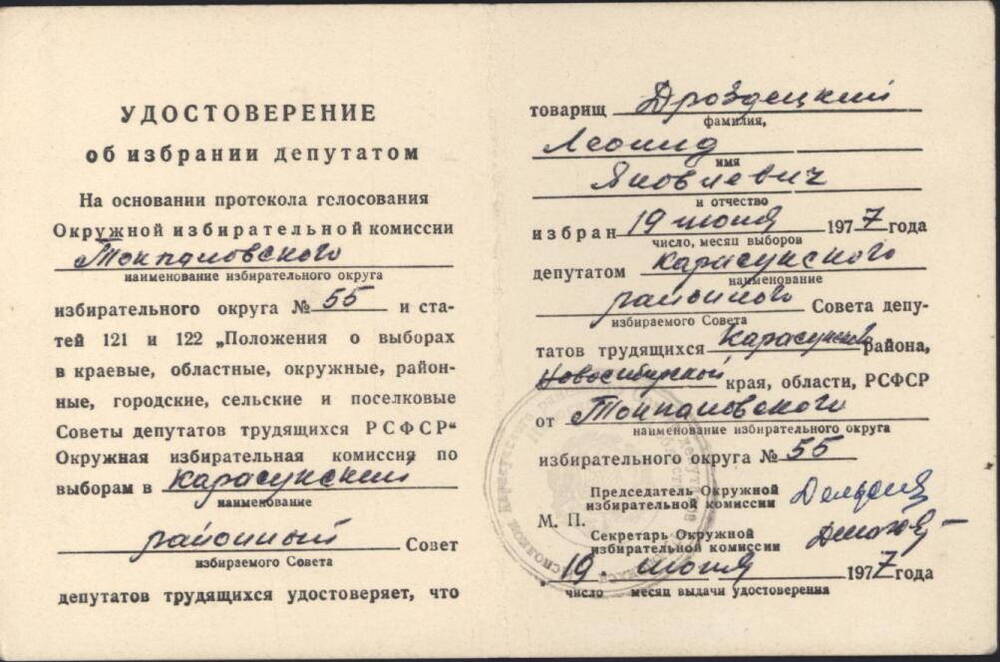 УДОСТОВЕРЕНИЕ
об избрании депутатом
На основании протокола голосования
Окружной избирательной комиссии
Тополовского
наименование избирательного округа
избирательного округа № 55 и ста-
тей 121 и 122 „Положения о выборах
в краевые, областные, окружные, район-
ные, городские, сельские и поселковые
Советы депутатов трудящихся РСФСР“
Окружная избирательная комиссия по
выборам в Карасукский
наименование
районный Совет
избираемого Совета
депутатов трудящихся удостоверяет, что
товарищ Дроздецкий
фамилия,
Леонид
имя
Яковлевич
и отчество
избран 19 июня 1977 года
число, месяц выборов
депутатом Карасукского
наименование
районного Совета депу-
избираемого Совета
татов трудящихся Карасукский района,
Новосибирской края, области, РСФСР
от
наименование избирательного округа
избирательного округа № 55
Председатель Окружной
избирательной комиссии
М. П.
Секретарь Окружной
избирательной комиссии
19. июня 1977 года
число месяц выдачи удостоверения